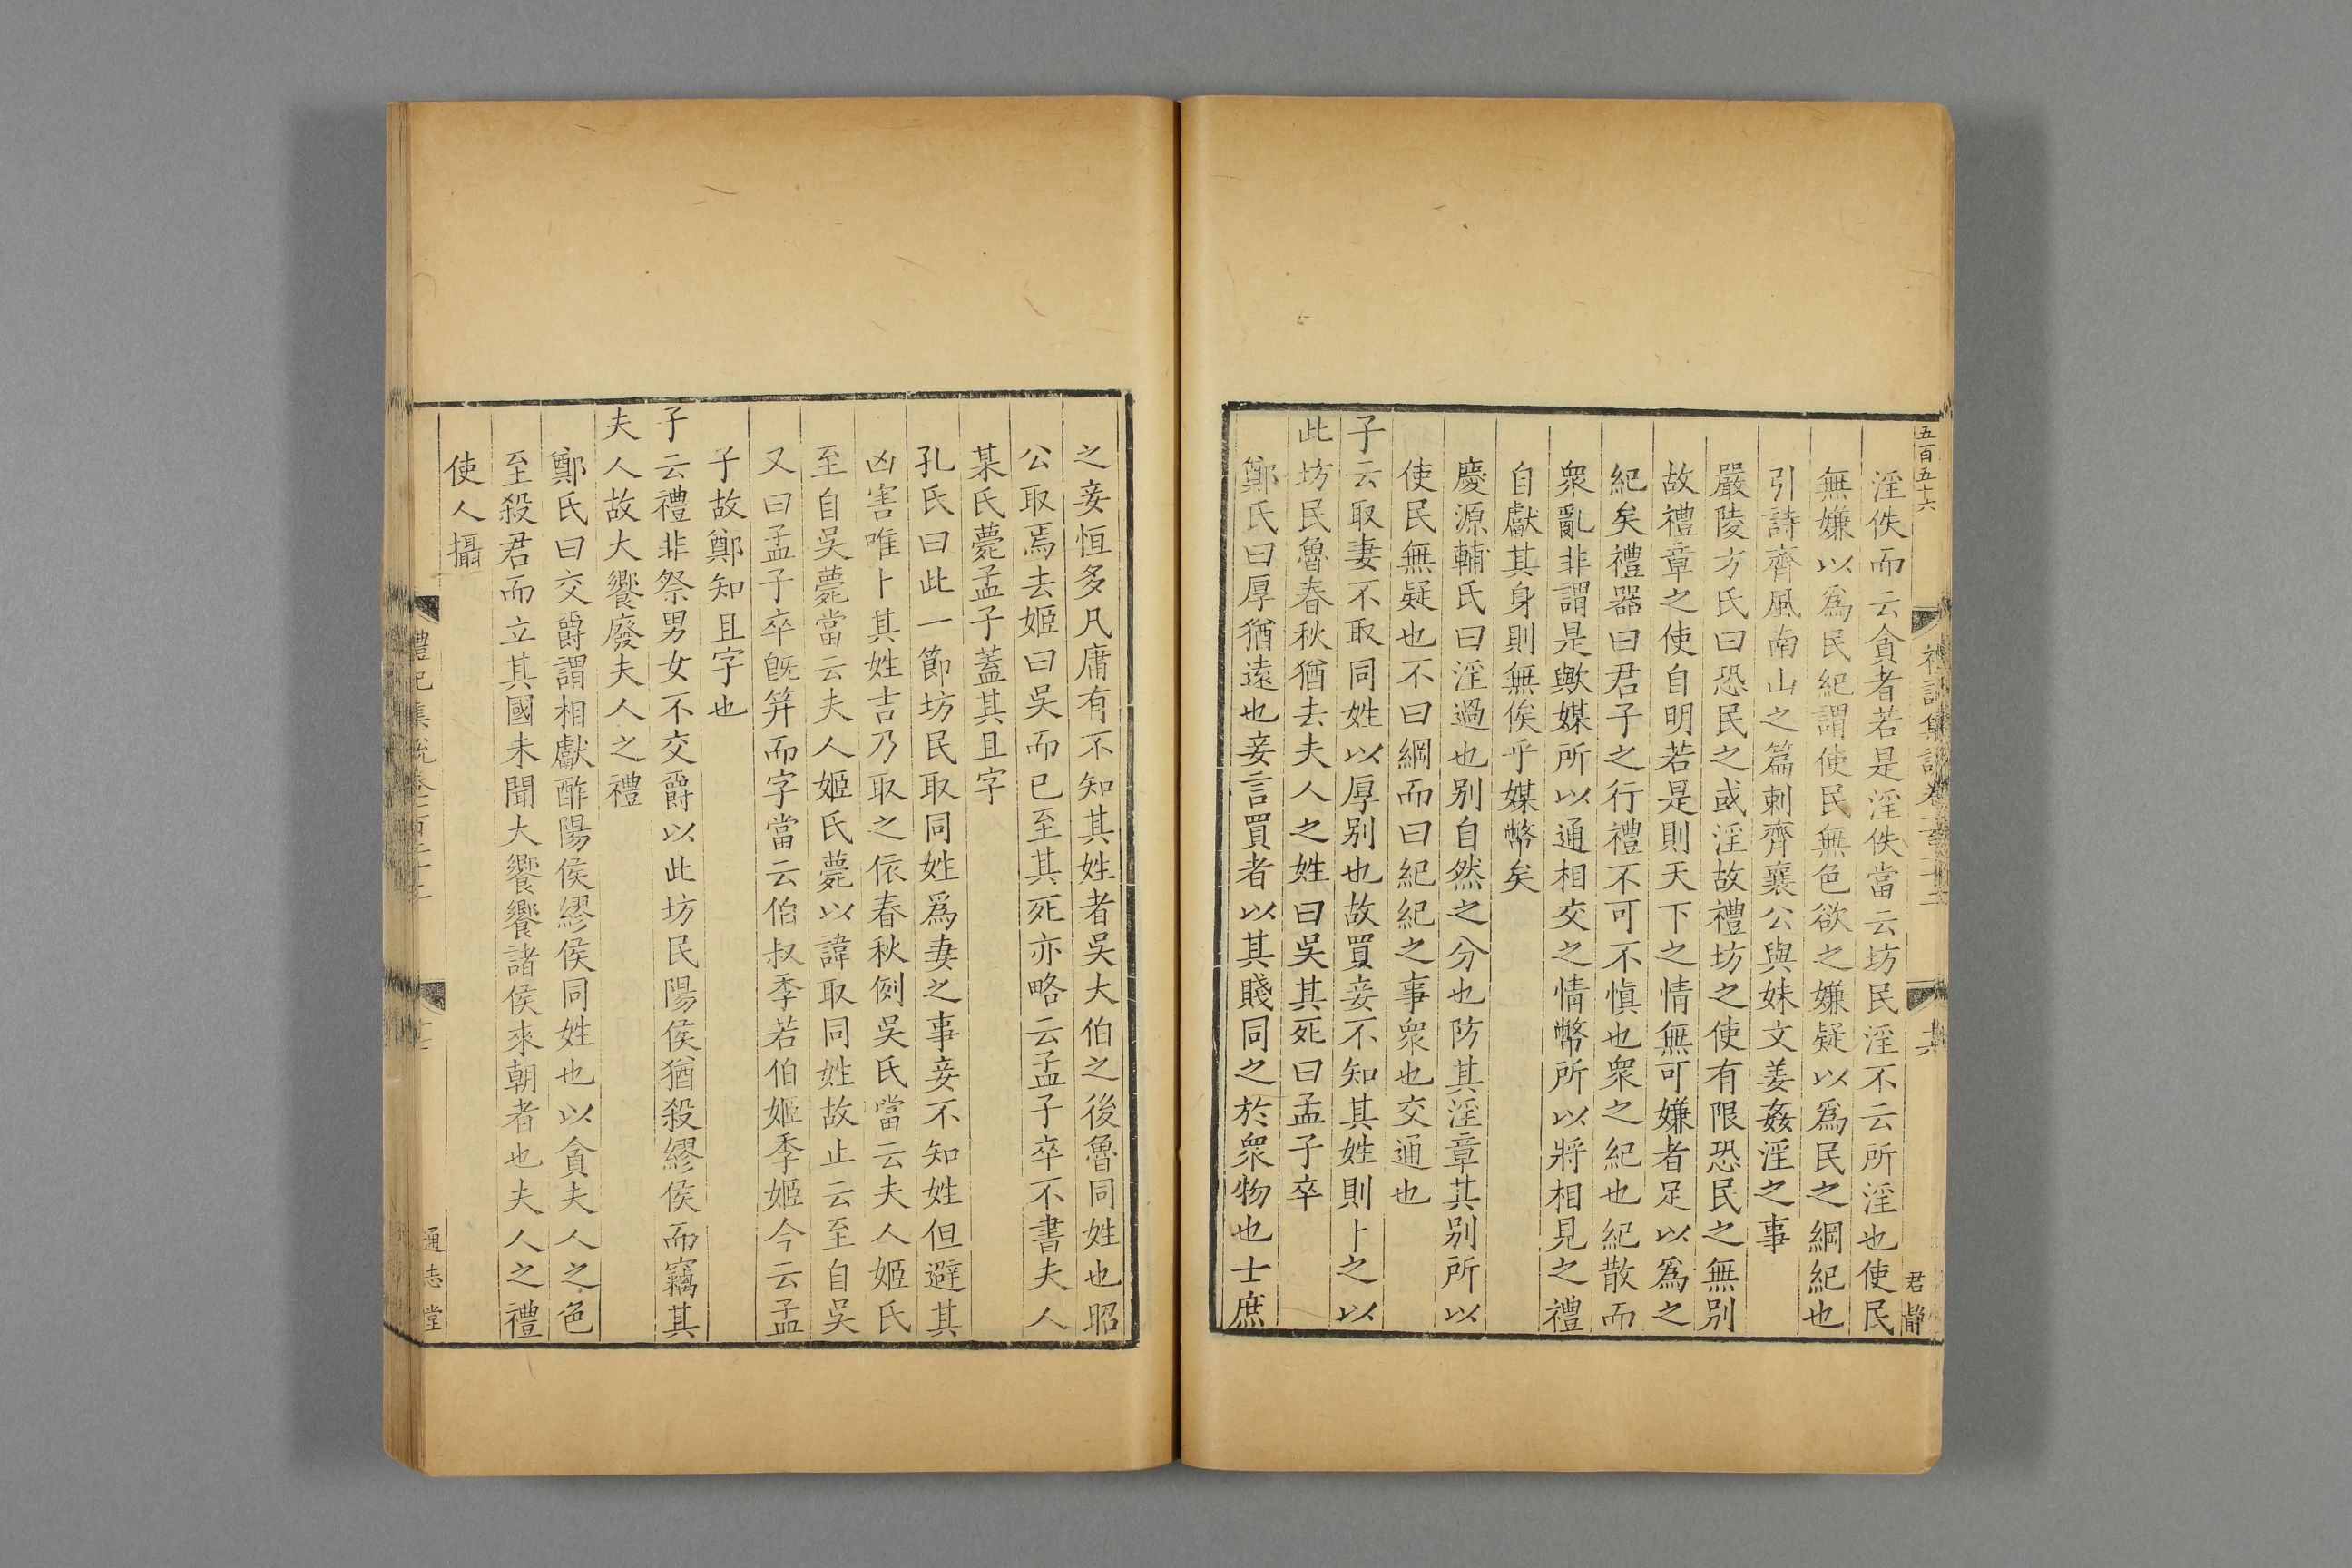 五百五十六
君
淫佚而云貪者若是淫佚當云坊民淫不云所淫也使民
無嫌以爲民紀謂使民無色欲之嫌疑以爲民之綱紀也
引詩齊風南山之篇刺齊襄公與妹文姜姦淫之事
嚴陵方氏曰恐民之或淫故禮坊之使有限恐民之無别
故禮章之使自明若是則天下之情無可嫌者足以爲之
紀矣禮器曰君子之行禮不可不愼也衆之紀也紀散而
衆亂非謂是歟媒所以通相交之情幣所以將相見之禮
自獻其身則無俟乎媒幣矣
慶源輔氏曰淫過也别自然之分也防其淫章其别所以
使民無疑也不曰綱而曰紀紀之事衆也交通也
子云取妻不取同姓以厚别也故買妾不知其姓則卜之以
此坊民魯春秋猶去夫人之姓曰吳其死曰孟子卒
鄭氏曰厚猶遠也妾言買者以其賤同之於衆物也士庶
之妾恒多凡庸有不知其姓者吳大伯之後魯同姓也昭
公取焉去姬曰吳而已至其死亦略云孟子卒不書夫人
某氏薨孟子蓋其且字
孔氏曰此一節坊民取同姓爲妻之事妾不知姓但避其
凶害唯卜其姓吉乃取之依春秋例吳氏當云夫人姬氏
至自吳薨當云夫人姬氏薨以諱取同姓故止云至自吳
又曰孟子卒旣笄而字當云伯叔季若伯姬季姬今云孟
子故鄭知且字也
子云禮非祭男女不交爵以此坊民陽侯猶殺繆侯而竊其
夫人故大饗廢夫人之禮
鄭氏曰交爵謂相獻酢陽侯繆侯同姓也以貪夫人之色
至殺君而立其國未聞大饗饗諸侯來朝者也夫人之禮
使人攝
通志堂